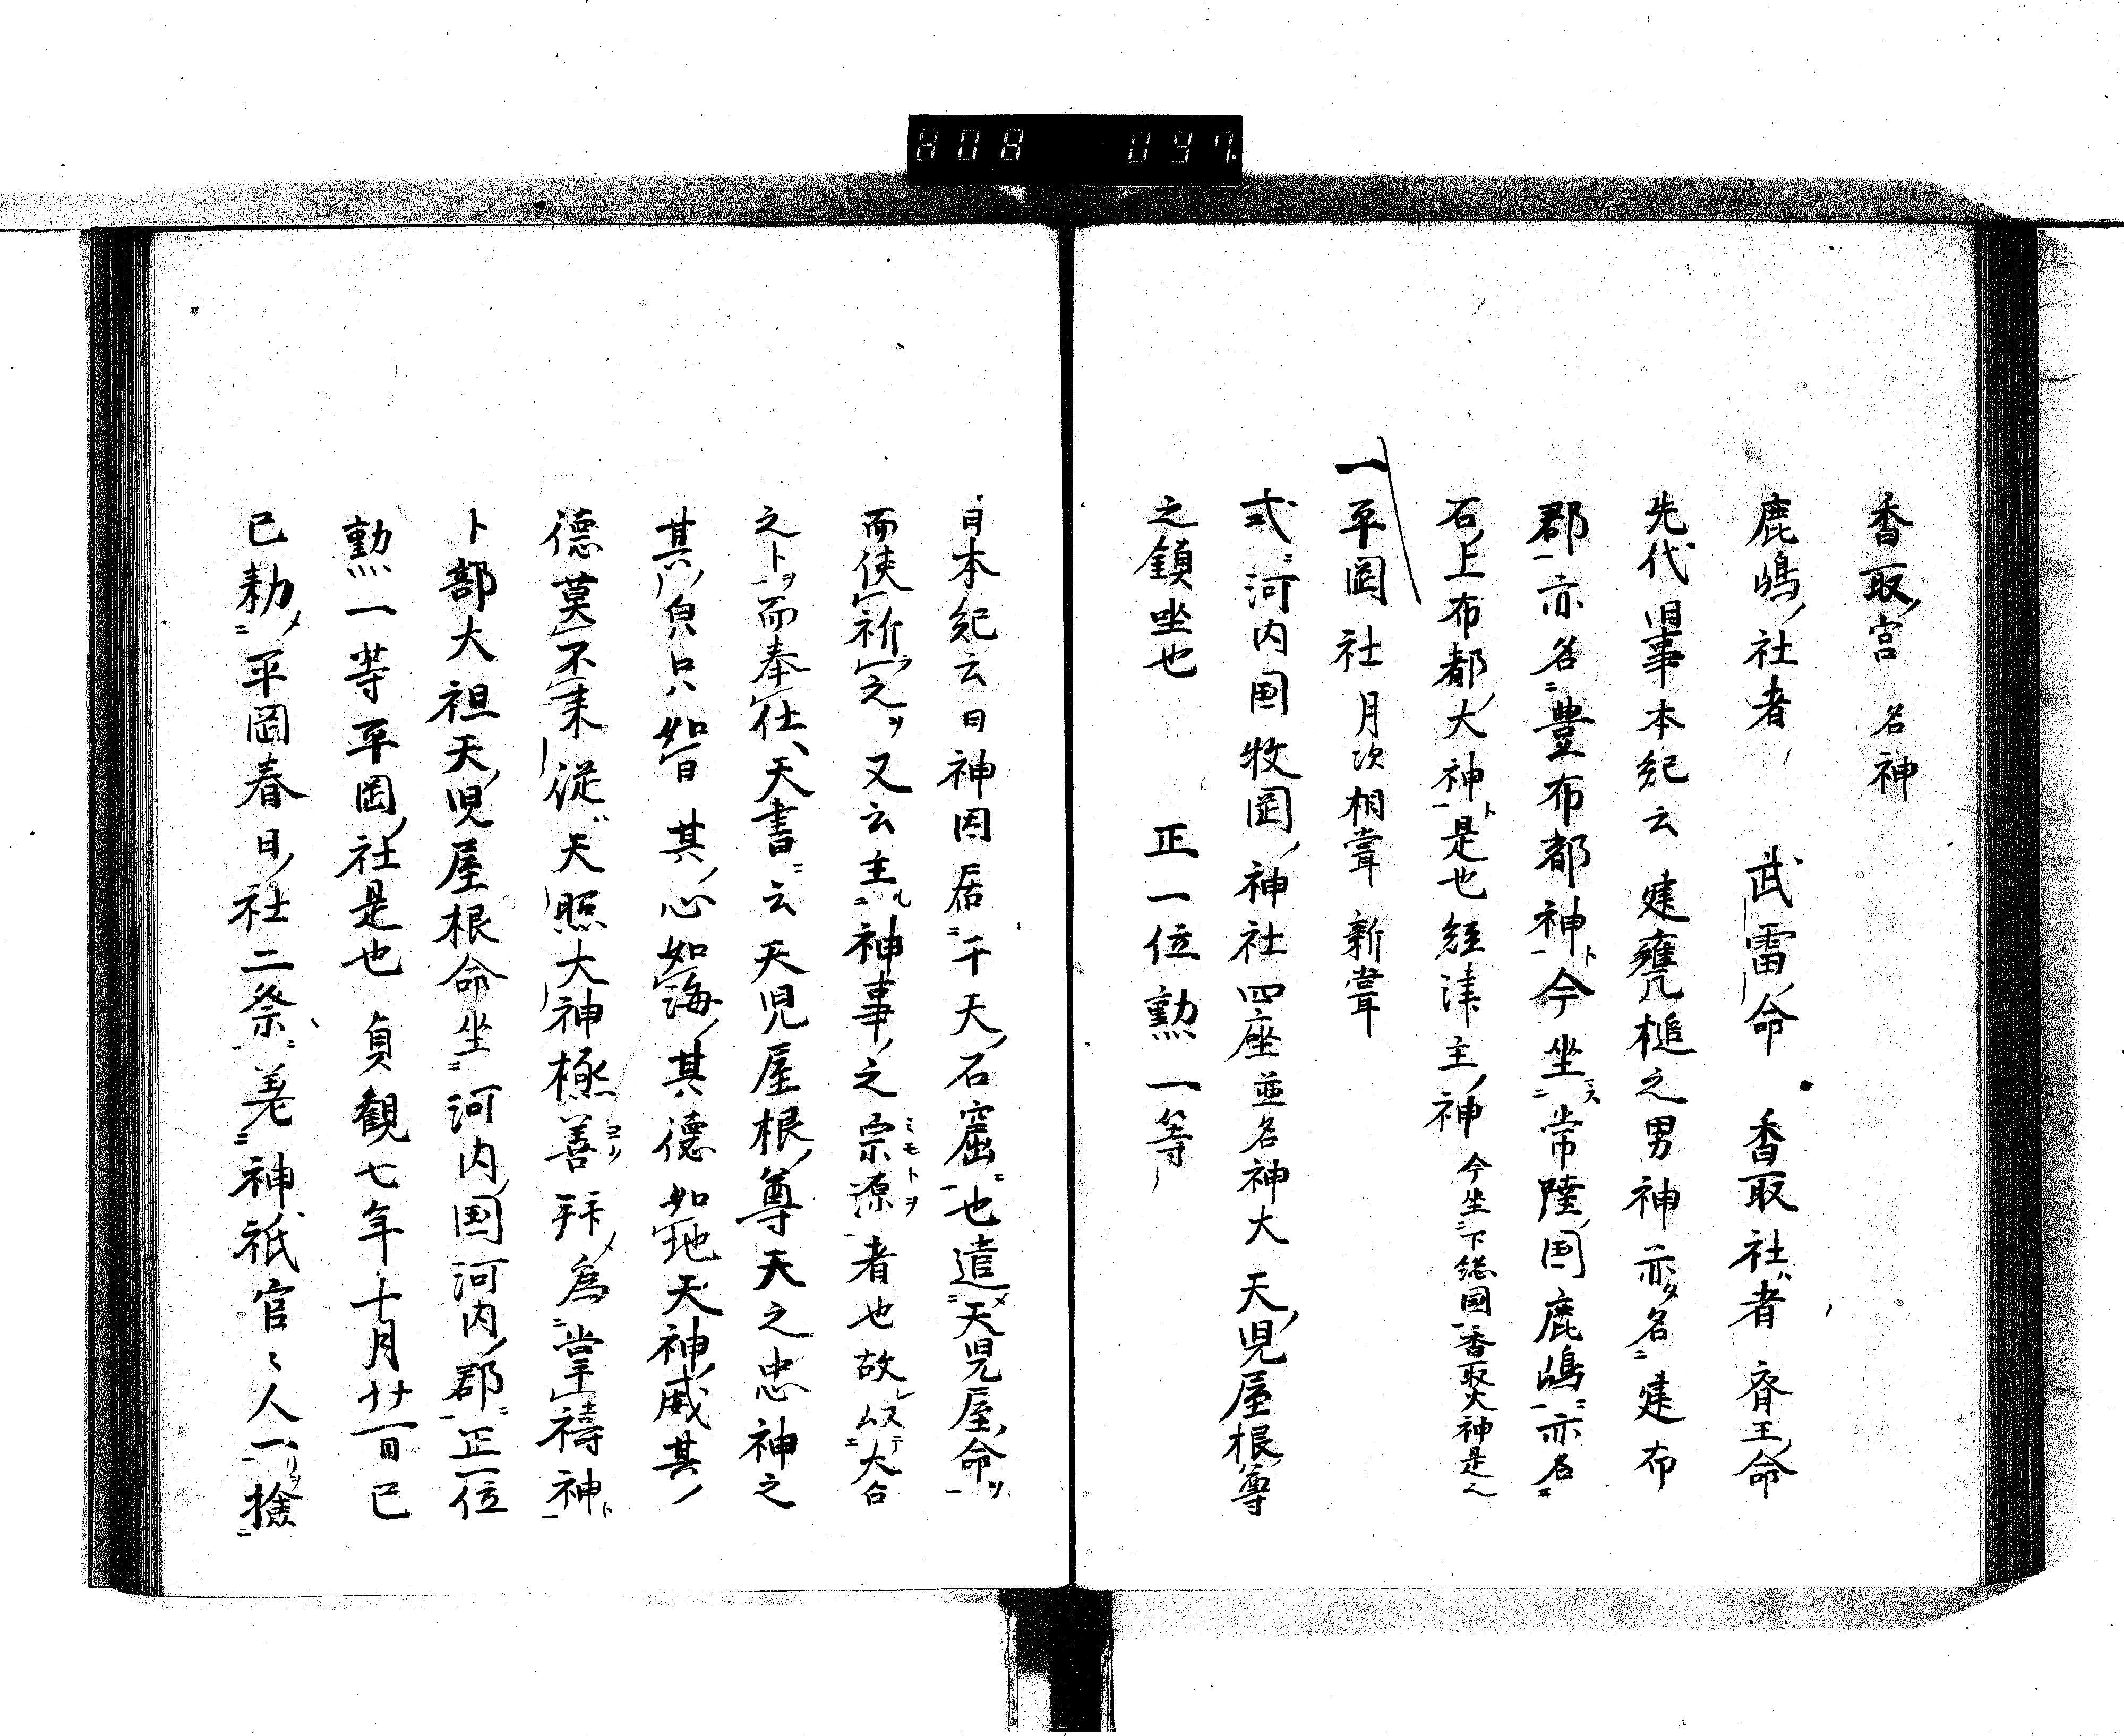 808 047
香取宮 名神
鹿嶋社者 武雷命 香取社者 齊主命
先代旧事本紀云 建甕槌之男神 亦名建布
都亦名豊布都神今坐常陸国鹿嶋亦名
石上布都大神是也 経津主神 今坐下総國香取大神是也
一平岡社 月次相嘗新嘗
式河内国牧岡神社四座並名神大 天児屋根尊
之鎮坐也 正一位勲一等
日本紀云日神因居于天石窟也遣天児屋命
而使祈之又云主神事之宗源者也故以大占
之卜而奉仕天書云天児屋根尊天之忠神之
其只如旨其心如海其徳如地天神威其
徳莫不来従天照大神極善拜為掌祷神
卜部大祖天児屋根命坐河内国河内郡正一位
勲一等平岡社是也 貞観七年十月廿一日己
巳勅平岡春日社二祭差神祇官々人一撿